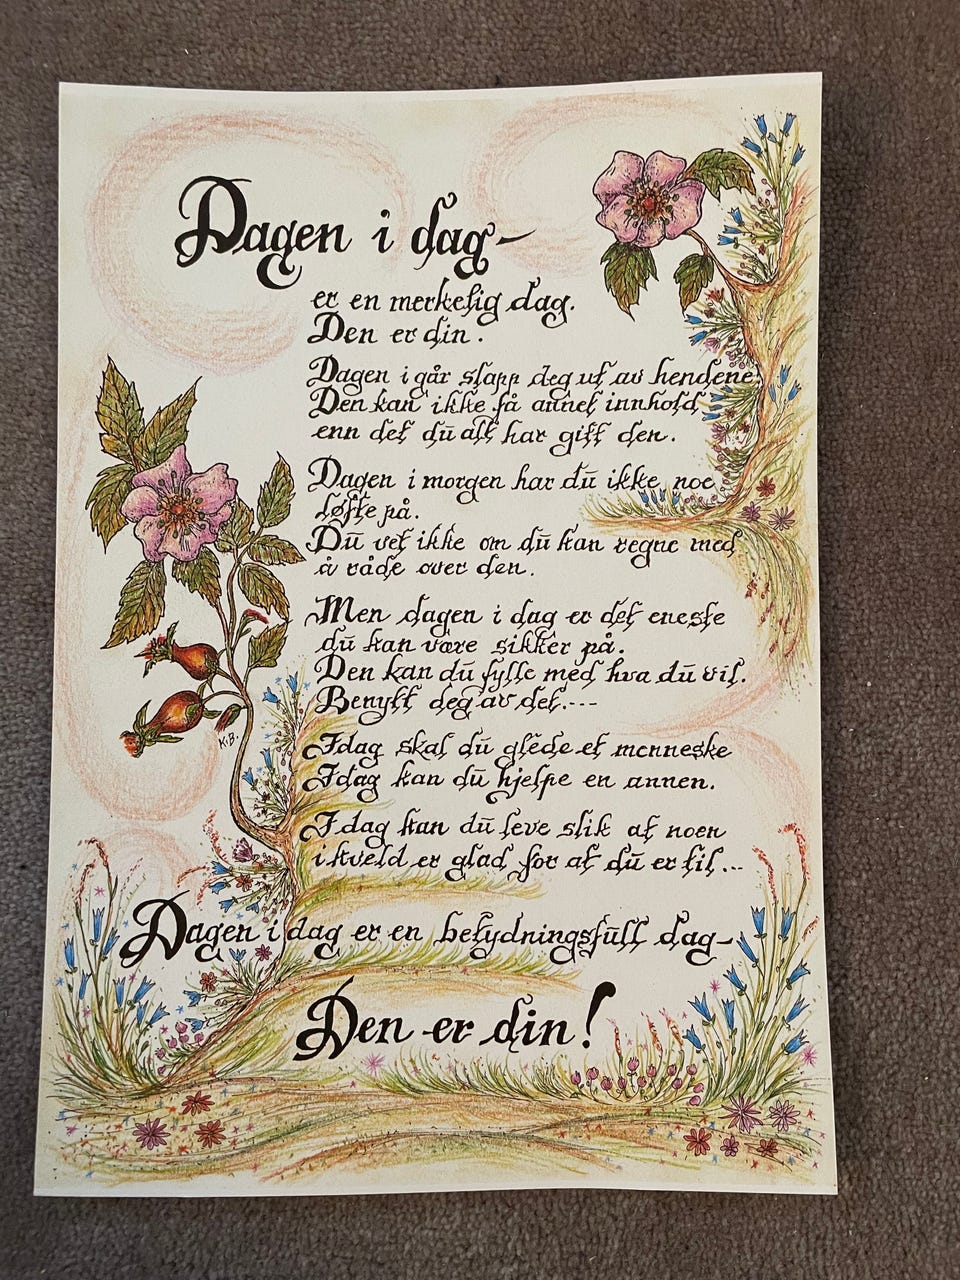 Dagen i dag-
er en merkelig dag.
Den er din.
Dagen i går slapp deg ut av hendene.
Den kan ikke få annet innhold,
enn det du alt har gitt den.
Dagen i morgen har du ikke noe
løfte på.
Du vet ikke om du kan regne med
å råde over den.
Men dagen i dag er det eneste
du kan være sikker på.
Den kan du fylle med hva du vil.
Benytt deg av det.---
Idag skal du glede et menneske
Idag kan du hjelpe en annen.
Idag kan du leve slik at noen
i kveld er glad for at du er til...
Dagen i dag er en betydningsfull dag-
Den er din!
K.B.